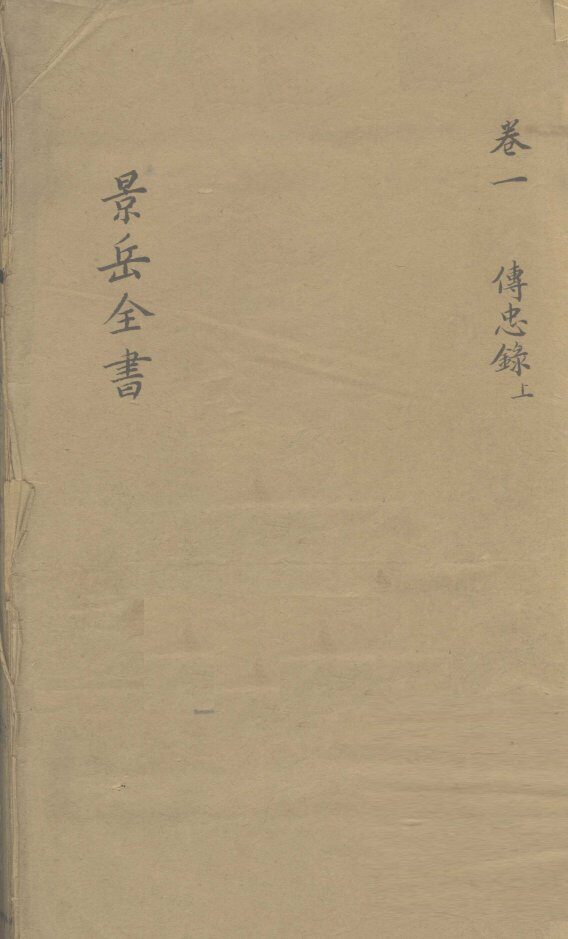 卷一 傳忠錄上
景岳全書